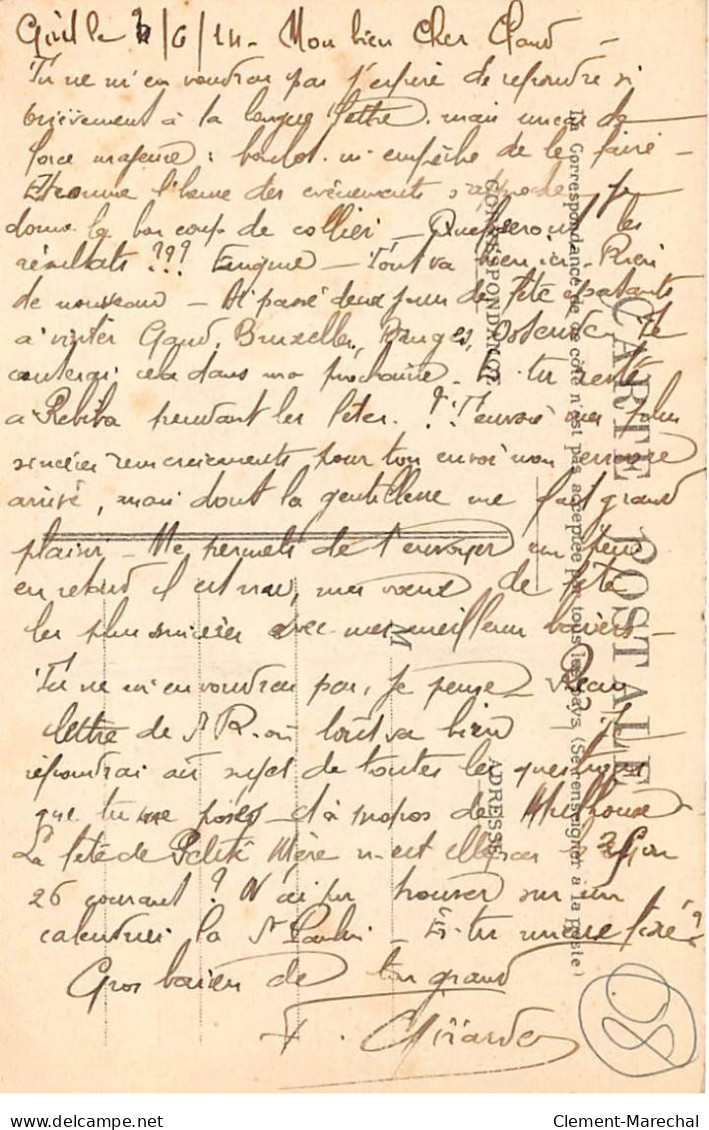 le /6/14 - Mon bien Cher
Tu ne m'en voudras pas j'espère de répondre si
brièvement à la longue lettre. mais un cas de
force majeure : boulot. m'empêche de le faire -
l'heure des évènements s'approche je
donne le bon coup de collier - Que seront les
résultats ??? Enigme - Tout va bien ici. Rien
de nouveau - Ai passé deux jours de fête épatants
à visiter Gand, Bruxelles, Bruges, Ostende. Je
conterai cela dans ma prochaine. tu resté
à pendant les fêtes. ? T'envoie mes plus
sincères remerciements pour ton envoi non encore
arrivé, mais dont la gentillesse me fait grand
plaisir - Me permets de t'envoyer un peu
en retard il est vrai, mes vœux de fête
les plus sincères avec mes meilleurs baisers -
Tu ne m'en voudras pas, je pense. Reçu
lettre de St R. où tout va bien
répondrai au sujet de toutes les questions
que tu me poses - et à propos de
La fête de Petite Mère n'est elle pas
26 courant ? N'ai pu trouver sur un
calendrier la St - Es-tu fixé ?
Gros baisers de ton grand
F. Girardo
CARTE POSTALE
La Correspondance de ce côté n'est pas acceptée par tous les pays. (Se renseigner à la poste)
CORRESPONDANCE
ADRESSE
M
80
delcampe.net
Clement-Marechal